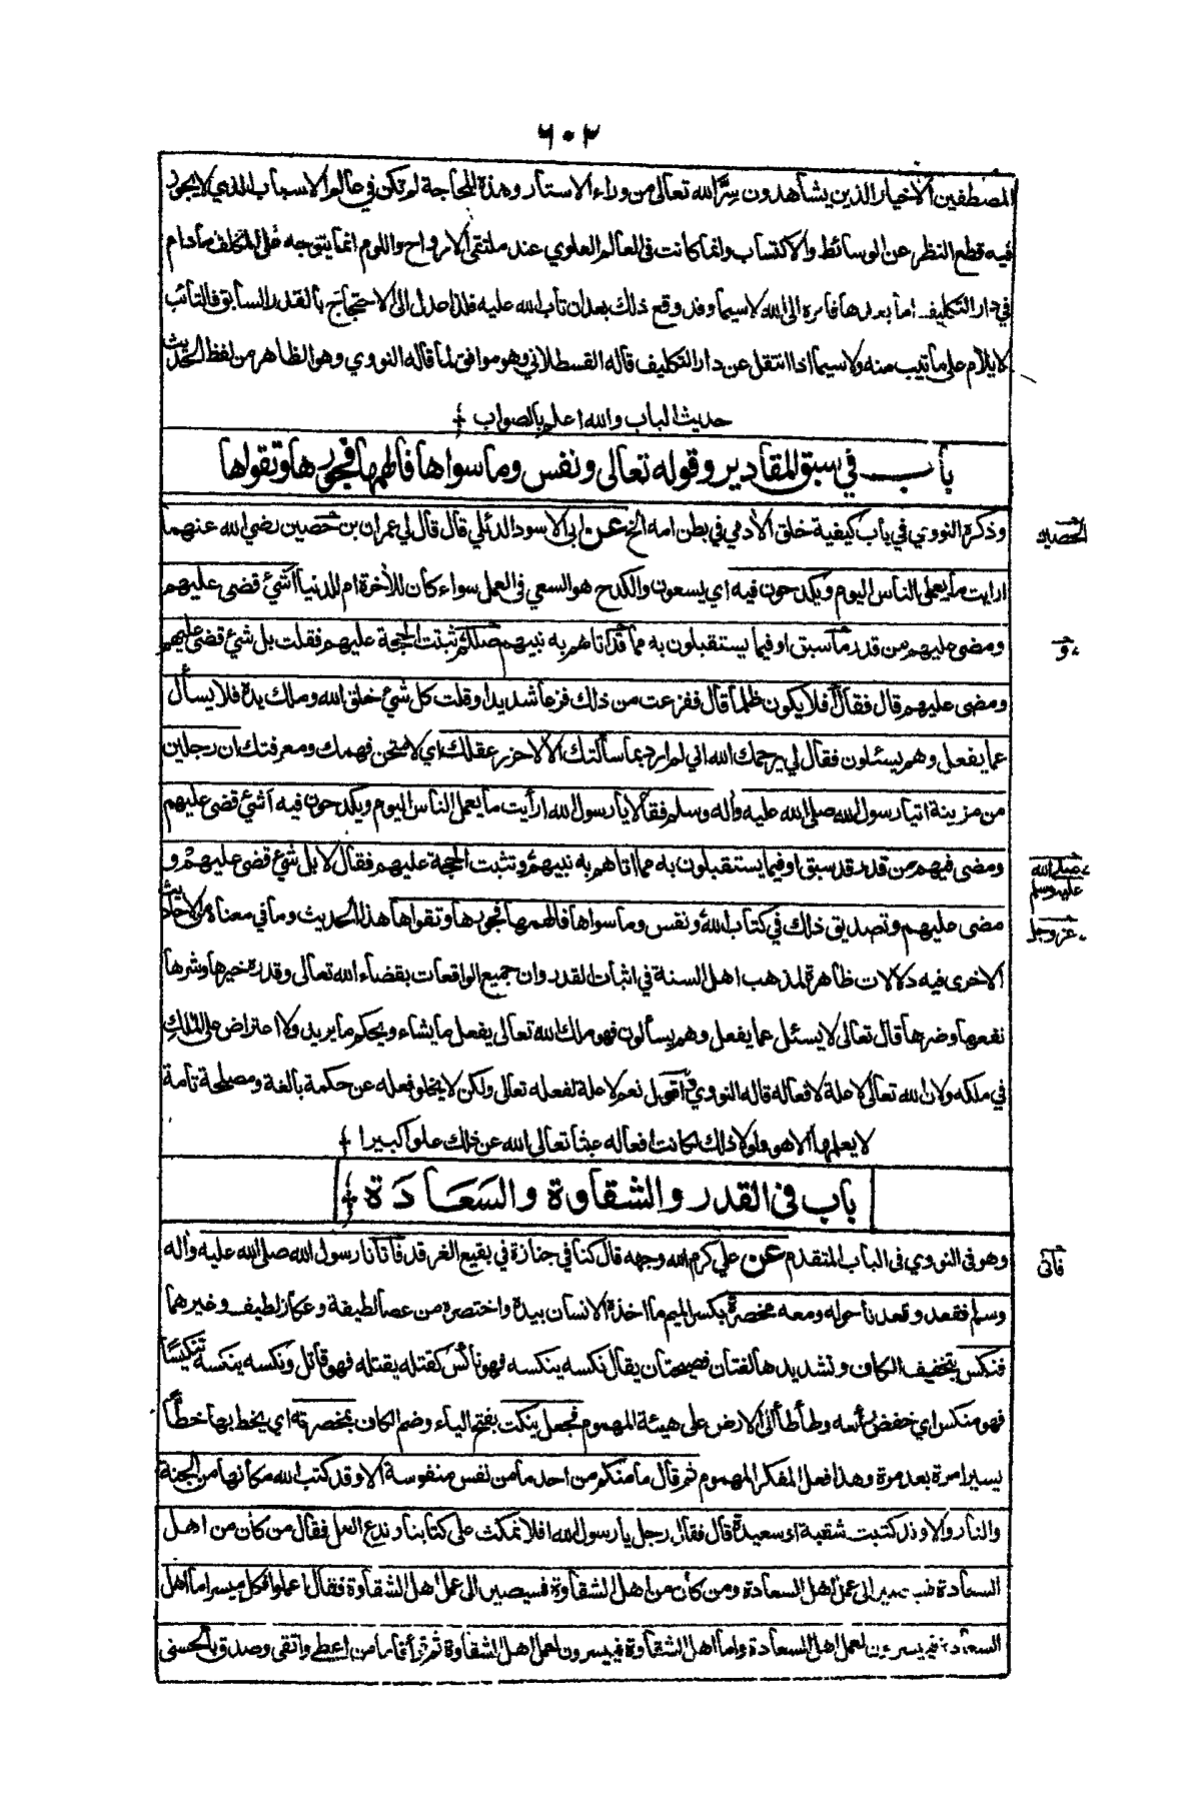 ٦٠٢
المصطفين الاخيار الذين يشاهدون سِرَّ الله تعالى من وراء الاستار وهذه المحاجة لم تكن في عالم الاسباب الذي لا يجوز
فيه قطع النظر عن الوسائط والاكتساب وانما كانت فى العالم العلوي عند ملتقى الارواح واللوم انما يتوجه على المكلف مادام
في دار التكليف اما بعدها فامره الى الله لاسيما وقد وقع ذلك بعد ان تاب الله عليه فلذا عدل الى الاحتجاج بالقدر السابق فالتائب
لا يلام على ما تيب منه ولا سيما اذا انتقل عن دار التكليف قاله القسطلاني وهو موافق لما قاله النووي وهو الظاهر من لفظ الحديث
حديث الباب والله اعلم بالصواب
باب في سبق المقادير وقوله تعالى ونفس وما سواها فألهمها فجورها وتقواها
وذكره النووي في باب كيفية خلق الأدمي في بطن امه الخ عن ابى الاسود الدئلي قال قال لي عمران بن حصين رضي الله عنهما
الحصين
ارايت ما يعمل الناس اليوم ويكدحون فيه اي يسعون والكدح هو السعي فى العمل سواء كان للأخرة ام للدنيا أشئ قضى عليهم
ومضى عليهم من قدر ما سبق او فيما يستقبلون به مما قد اتاهم به نبيهم صللم ثبتت الحجة عليهم فقلت بل شئ قضى عليهم
و
ومضى عليهم قال فقال أفلا يكون ظلما قال ففزعت من ذلك فزعا شديدا وقلت كل شئ خلق الله وملك يده فلا يسأل
عما يفعل وهم يسئلون فقال لي يرحمك الله اني لم ارد بما سألتك الا لاحزر عقلك اي لامتحن فهمك ومعرفتك ان رجلين
من مزينة اتيا رسول الله صلى الله عليه وأله وسلم فقالا يا رسول الله ارأيت ما يعمل الناس اليوم ويكدحون فيه أشئ قضى عليهم
ومضى فيهم من قدر قد سبق او فيما يستقبلون به مما اتاهم به نبيهم وتثبت الحجة عليهم فقال لا بل شئ قضى عليهم و
صلى الله عليه وسلم
مضى عليهم وتصديق ذلك في كتاب الله ونفس وما سواها فالهمها فجورها وتقواها هذا الحديث وما في معناه من الاحاديث
عز وجل
الاخرى فيه دلالات ظاهرة لمذهب اهل السنة في اثبات القدر وان جميع الواقعات بقضاء الله تعالى وقدره خيرها وشرها
نفعها وضرها قال تعالى لا يسئل عما يفعل وهم يسألون فهو ملك لله تعالى يفعل ما يشاء ويحكم ما يريد ولا اعتراض على المَلِكِ
في ملكه ولان الله تعالى لا علة لافعاله قاله النووي اقول نعم لا علة لفعله تعالى ولكن لا يخلو فعله عن حكمة بالغة ومصلحة تامة
لا يعلمها الا هو ولولا ذلك لكانت افعاله عبثا تعالى الله عن ذلك علوا كبيرا
باب فى القدر والشقاوة والسعادة
وهو فى النووي فى الباب المتقدم عن علي كرم الله وجهه قال كنا في جنازة في بقيع الغرقد فاتانا رسول الله صلى الله عليه وأله
فاتى
وسلم فقعد وقعدنا حوله ومعه مخصرة بكسر الميم ما اخذه الانسان بيده واختصره من عصا لطيفة وعكاز لطيف وغيرهما
فنكس بتخفيف الكاف وتشديدها لغتان فصيحتان يقال نكسه ينكسه فهو ناكس كقتله يقتله فهو قاتل ونكسه ينكسه تنكيسًا
فهو منكس اي خفض رأسه وطأطأ الى الارض على هيئة المهموم فجعل ينكت بفتح الياء وضم الكاف بمخصرته اي يخط بها خطًّا
يسيرا مرة بعد مرة وهذا فعل المفكر المهموم ثم قال ما منكم من احد ما من نفس منفوسة الا وقد كتب الله مكانها من الجنة
والنار والا وقد كتبت شقية او سعيدة قال فقال رجل يا رسول الله افلا نمكث على كتابنا وندع العمل فقال من كان من اهل
السعادة فسيصير الى عمل اهل السعادة ومن كان من اهل الشقاوة فسيصير الى عمل اهل الشقاوة فقال اعملوا فكل ميسر اما اهل
السعادة فييسرون لعمل اهل السعادة واما اهل الشقاوة فييسرون لعمل اهل الشقاوة ثم قرأ فاما من اعطى واتقى وصدق بالحسنى